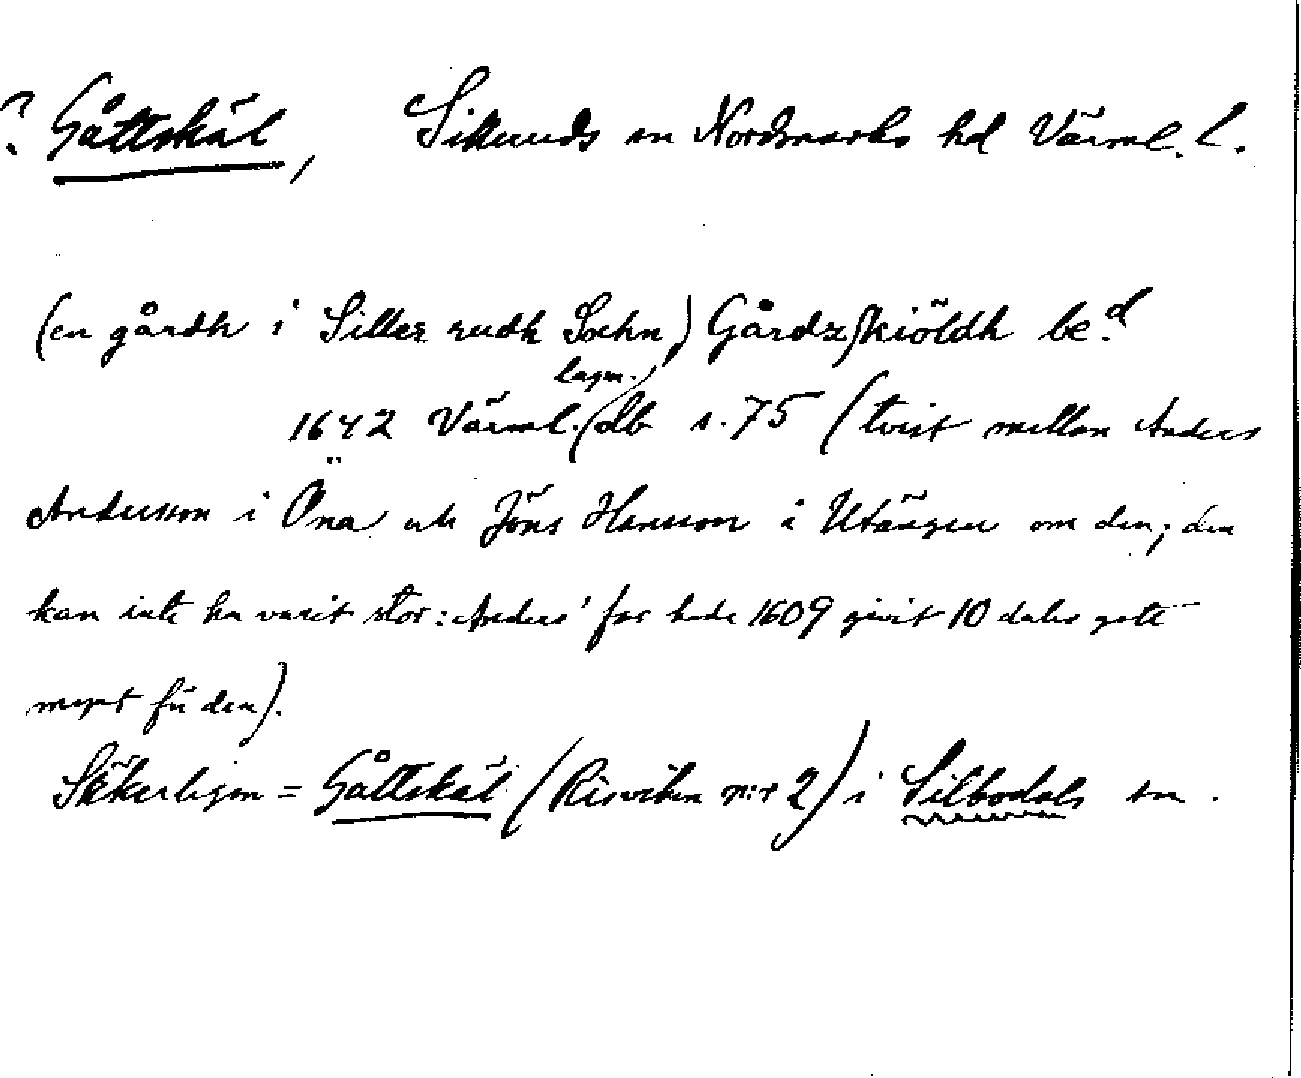 ? Gåttskäl, Silleruds sn Nordmarks hd Värml. l.
(en gårdh i Siller rudh Sochn) Gårdzskiöldh be.d
1642 Värml. lagm. db s. 75 (tvist mellan Anders
Andersson i Öna och Jöns Hansson i Utängen om den; den
kan inte ha varit stor: Anders' far hade 1609 givit 10 daler gott
mynt för den).
Säkerligen = Gåttskäl (Kirviken n:r 2) i Silbodals sn.